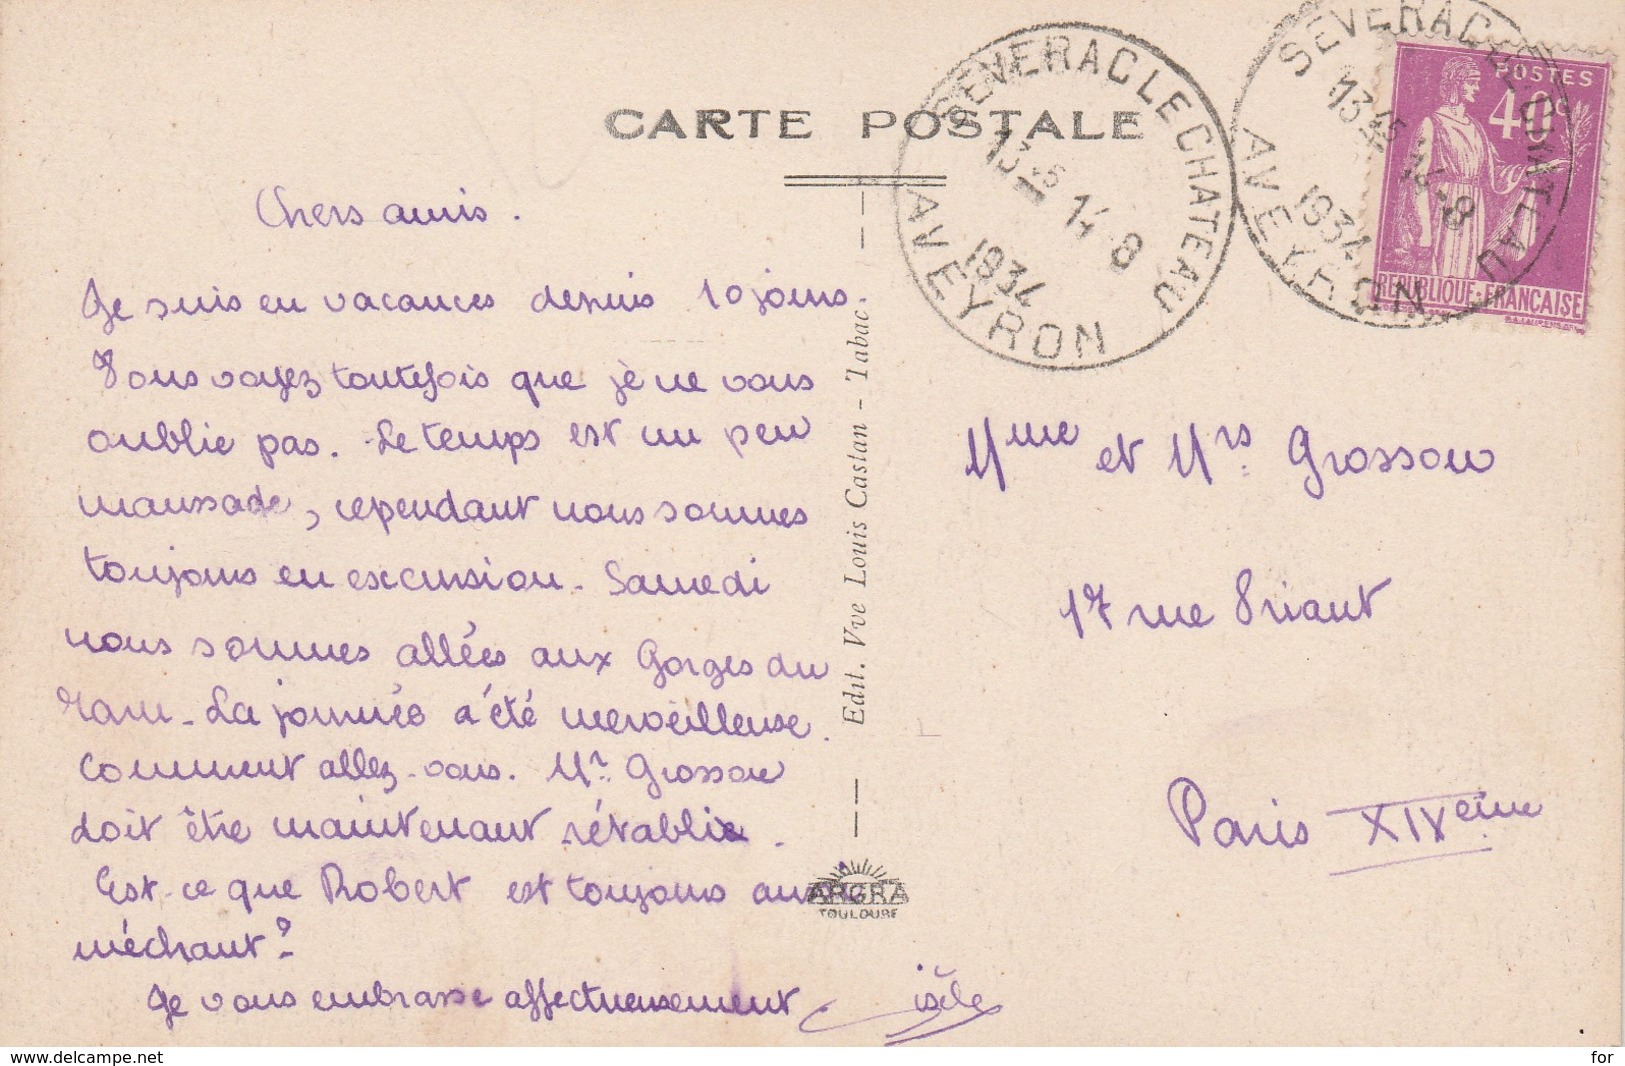 CARTE POSTALE
SEVERAC LE CHATEAU
13 45
14 - 8
1934
AVEYRON
SEVERAC LE CHATEAU
13 45
14 - 8
1934
AVEYRON
POSTES
40c
REPUBLIQUE FRANÇAISE
Chers amis.
Je suis en vacances depuis 10 jours.
Vous voyez toutefois que je ne vous
oublie pas. Le temps est un peu
maussade, cependant nous sommes
toujours en excursion. Samedi
nous sommes allées aux Gorges du
Tarn. La journée a été merveilleuse.
Comment allez-vous. Mr. Grosson
doit être maintenant rétablie.
Est-ce que Robert est toujours aussi
méchant?
Je vous embrasse affectueusement
Edit. Vve Louis Castan - Tabac
ARGRA
TOULOUSE
Mme et Mrs. Grossou
17 rue Friant
Paris XIVeme
www.delcampe.net
for